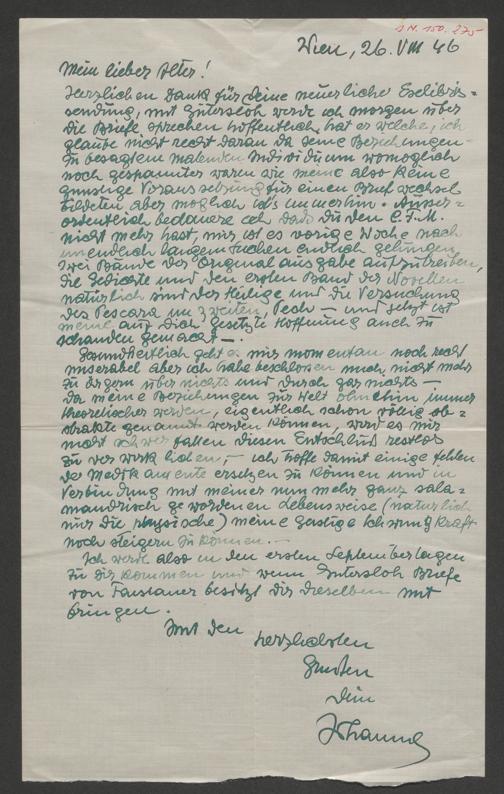 J.N. 150.275
Wien, 26. VIII 46
Mein lieber Alter!
Herzlichen Dank für Deine neuerliche Exlibris=
sendung, mit Gütersloh werde ich morgen über
die Briefe sprechen hoffentlich hat er welche, ich
glaube nicht recht daran da seine Beziehungen
zu besagtem malenden Individuum womöglich
noch gespannter waren wie meine also keine
günstige Voraussetzung für einen Briefwechsel
bildeten aber möglich ist's immerhin. Ausser=
ordentlich bedauere ich dass Du den C.F.M.
nicht mehr hast, mir ist es vorige Woche nach
unendlich langem Suchen endlich gelungen
zwei Bände der Originalausgabe aufzutreiben,
die Gedichte und den ersten Band der Novellen
natürlich sind der Heilige und die Versuchung
des Pescara im zweiten, Pech — und jetzt ist
meine auf Dich gesetzte Hoffnung auch zu
schanden gemacht —.
Gesundheitlich geht es mir momentan noch recht
miserabel aber ich habe beschlossen mich nicht mehr
zu ärgern über nichts und durch gar nichts —
Da meine Beziehungen zur Welt ohnehin immer
theoretischer werden, eigentlich schon völlig ab=
strakte genannt werden können, wird es mir
nicht schwer fallen diesen Entschluss restlos
zu verwirklichen, — ich hoffe damit einige fehlen
de Medikamente ersetzen zu können und in
Verbindung mit meiner nunmehr ganz sala=
mandrisch gewordenen Lebensweise (natürlich
nur die physische) meine geistige Schwungkraft
noch steigern zu können. —
Ich werde also in den ersten Septembertagen
zu Dir kommen und wenn Gütersloh Briefe
von Faistauer besitzt Dir dieselben mit
bringen.
Mit den
herzlichsten
Grüssen
Dein
Johannes